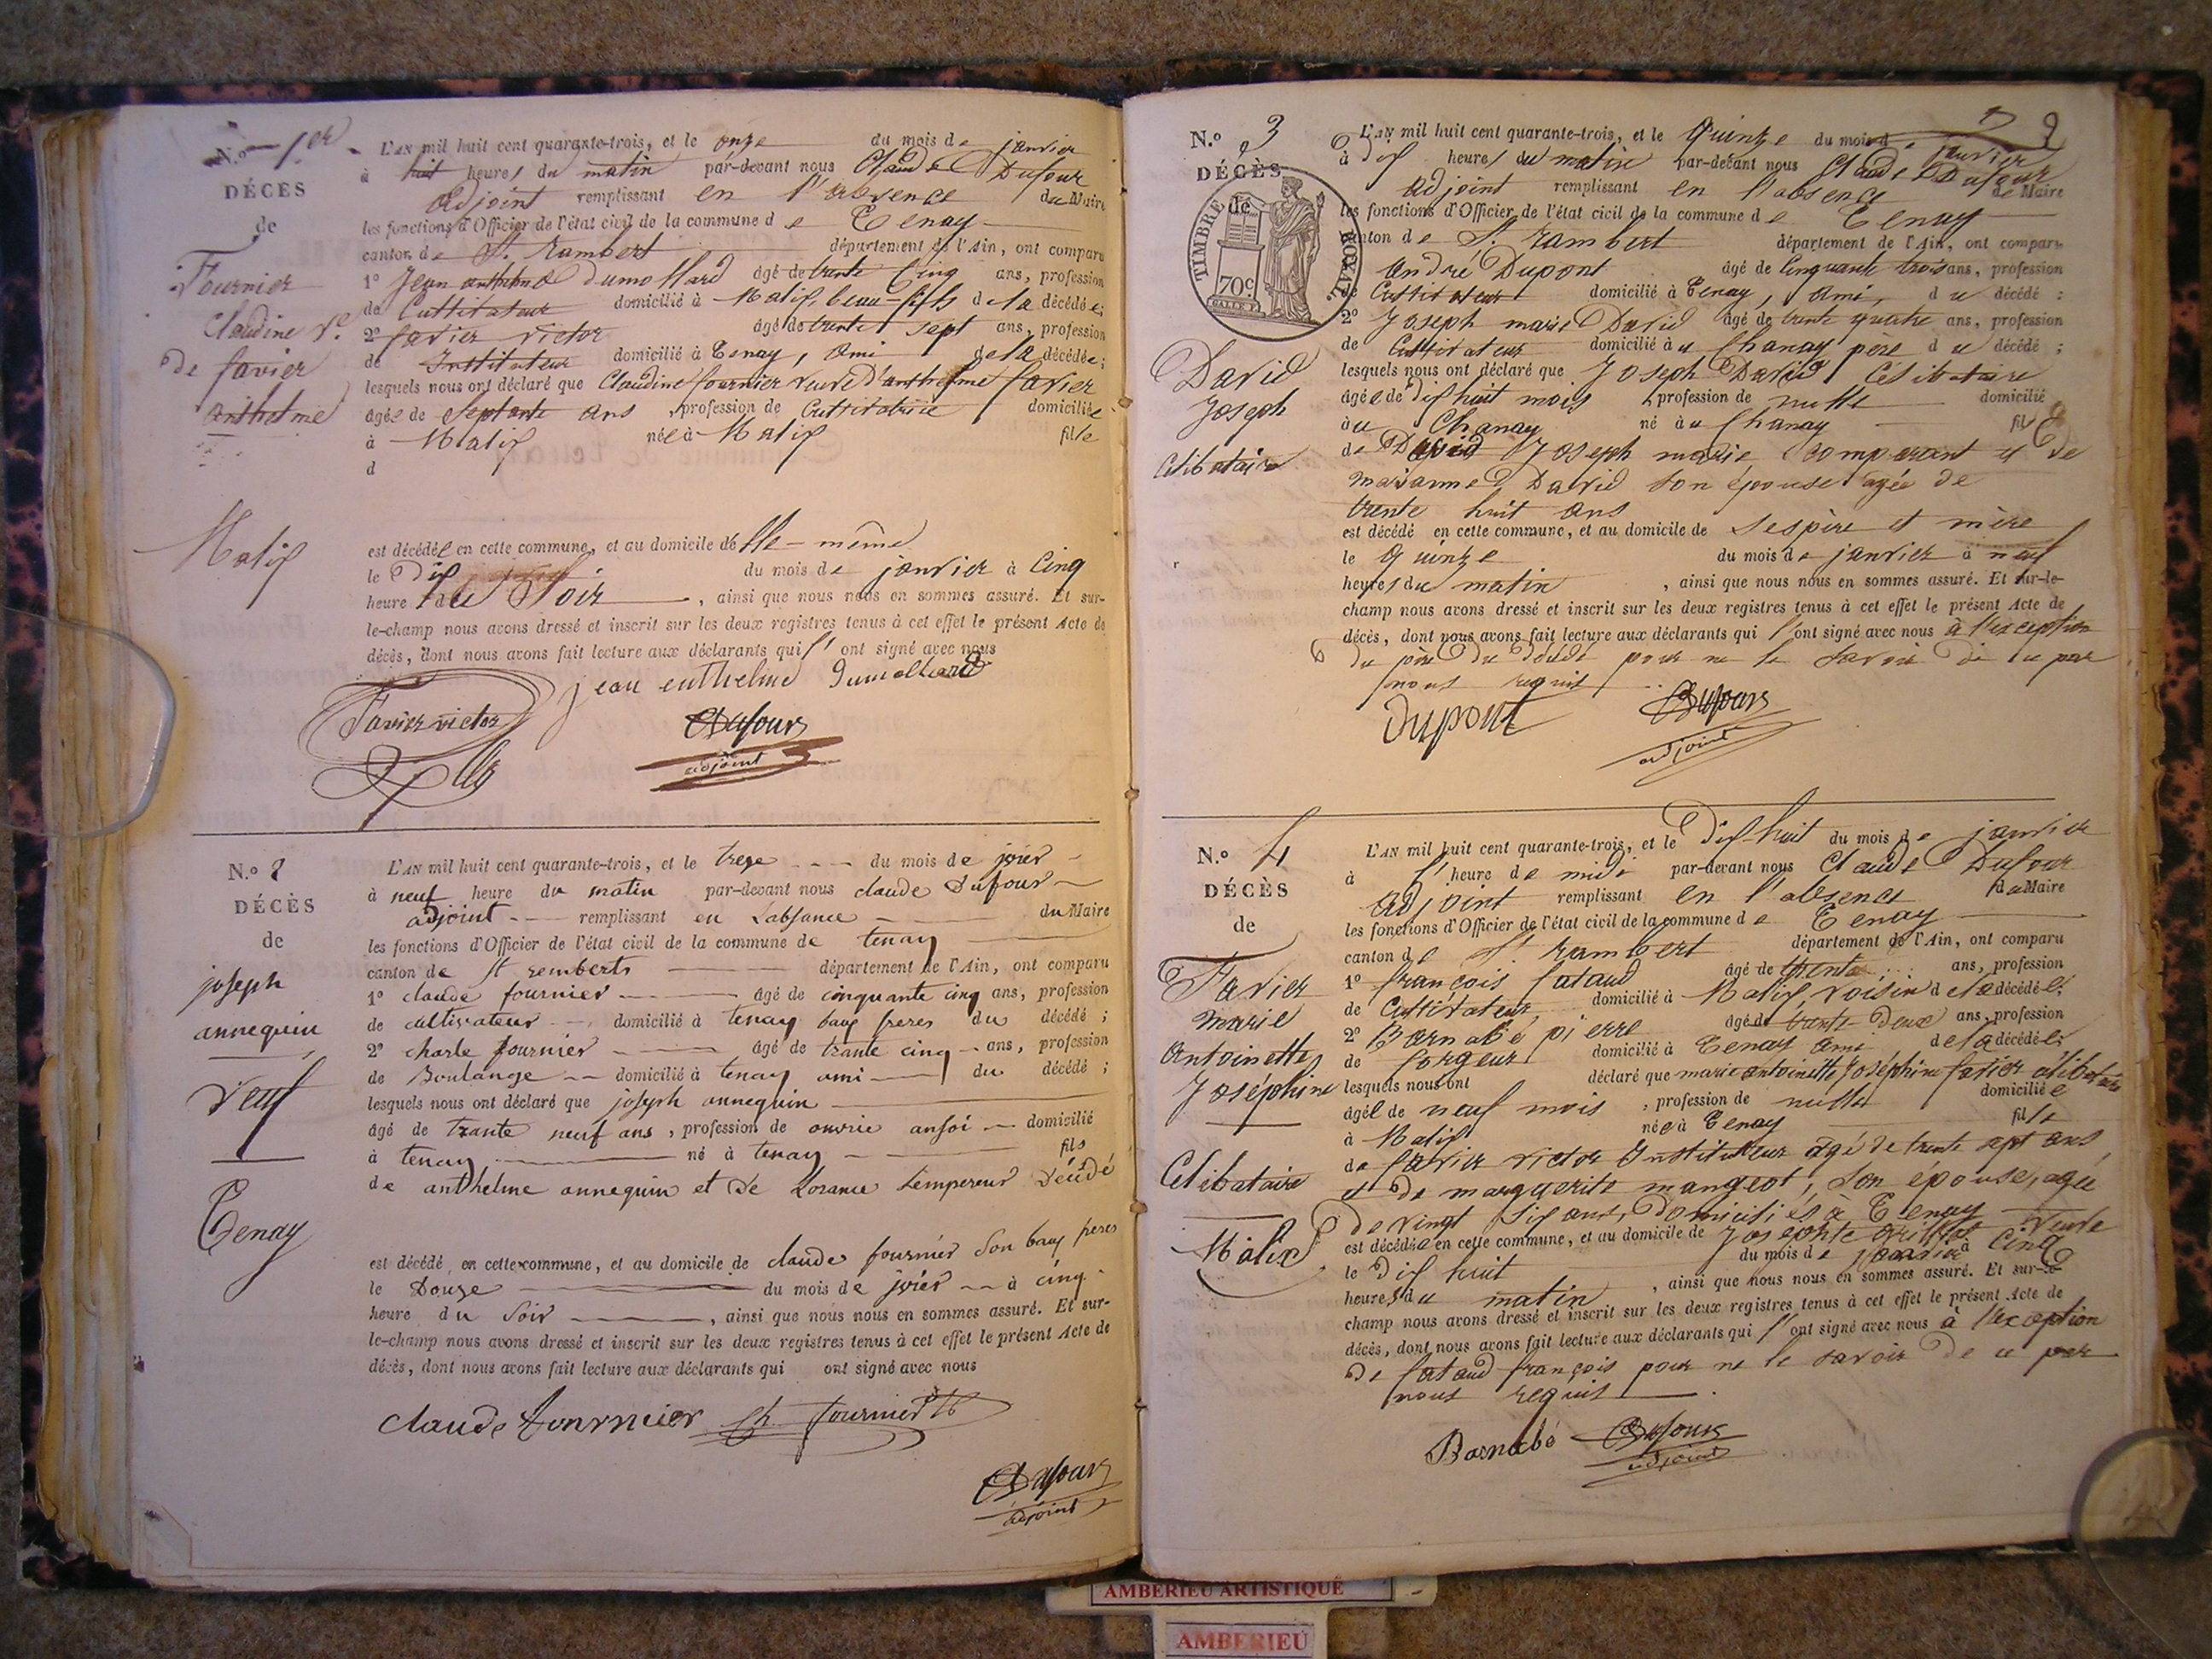 N.o 1er
DÉCÈS
de
Fournier
Claudine Ve.
de favier
anthelme
Malix
L'AN mil huit cent quarante-trois, et le onze du mois de janvier
à huit heures du matin par-devant nous Claude Dufour
Adjoint remplissant en l'absence du Maire
les fonctions d'Officier de l'état civil de la commune de Tenay
canton de St. Rambert département de l'Ain, ont comparu
1° Jean anthelme dumollard âgé de trente Cinq ans, profession
de Cultivateur domicilié à Malix, beau-fils de la décédée;
2° favier victor âgé de trente sept ans, profession
de Instituteur domicilié à Tenay, ami de la décédée;
lesquels nous ont déclaré que Claudine fournier veuve d'anthelme favier
âgée de Septante ans, profession de Cultivatrice domiciliée
à Malix née à Malix fille
d
est décédée en cette commune, et au domicile d'elle-même
le Dix du mois de janvier à Cinq
heure du Soir, ainsi que nous nous en sommes assuré. Et sur-
le-champ nous avons dressé et inscrit sur les deux registres tenus à cet effet le présent Acte de
décès, dont nous avons fait lecture aux déclarants qui l'ont signé avec nous
jean enthelme Dumollard
Favier victor
CDufour
adjoint
N.o 2
DÉCÈS
de
joseph
annequin
Veuf
Tenay
L'AN mil huit cent quarante-trois, et le treze du mois de jvier
à neuf heure du matin par-devant nous claude Dufour
adjoint remplissant en Labsance du Maire
les fonctions d'Officier de l'état civil de la commune de tenay
canton de St remberts département de l'Ain, ont comparu
1° claude fournier âgé de cinquante cinq ans, profession
de cultivateur domicilié à tenay baux freres du décédé;
2° charle fournier âgé de trante cinq ans, profession
de Boulange domicilié à tenay ami du décédé;
lesquels nous ont déclaré que joseph annequin
âgé de trante neuf ans, profession de ouvrie ansoi domicilié
à tenay né à tenay fils
de anthelme annequin et de Lorance Lempereur Décédé
est décédé en cette commune, et au domicile de claude fournier Son baux freres
le Douze du mois de jvier à cinq
heure du Soir, ainsi que nous nous en sommes assuré. Et sur-
le-champ nous avons dressé et inscrit sur les deux registres tenus à cet effet le présent Acte de
décès, dont nous avons fait lecture aux déclarants qui ont signé avec nous
claude fournier Ch. fournier
CDufour
adjoint
N.o 3
DÉCÈS
de
TIMBRE ROYAL
70c
David
Joseph
Célibataire
L'AN mil huit cent quarante-trois, et le Quinze du mois de janvier
à dix heures du matin par-devant nous Claude Dufour
Adjoint remplissant en l'absence de Maire
les fonctions d'Officier de l'état civil de la commune de Tenay
canton de St. Rambert département de l'Ain, ont comparu
André Dupont âgé de Cinquante trois ans, profession
de Cultivateur domicilié à Tenay, Ami, du décédé;
2° Joseph marie David âgé de trente quatre ans, profession
de Cultivateur domicilié à u Chanay père du décédé;
lesquels nous ont déclaré que Joseph David Célibataire
âgé de dix huit mois, profession de nulle domicilié
à u Chanay né à u Chanay fils
de David Joseph marie Comparant et de
marianne David son épouse agée de
trente huit ans
est décédé en cette commune, et au domicile de ses père et mère
le Quinze du mois de janvier à neuf
heures du matin, ainsi que nous nous en sommes assuré. Et sur-le-
champ nous avons dressé et inscrit sur les deux registres tenus à cet effet le présent Acte de
décès, dont nous avons fait lecture aux déclarants qui l'ont signé avec nous à l'exception
du père du décédé pour ne le savoir de ce par
nous requis
Dupont CDufour
adjoint
N.o 4
DÉCÈS
de
Favier
marie
Antoinette
Joséphine
Célibataire
Malix
L'AN mil huit cent quarante-trois, et le Dix huit du mois de janvier
à l'heure de midi par-devant nous Claude Dufour
Adjoint remplissant en l'absence du Maire
les fonctions d'Officier de l'état civil de la commune de Tenay
canton de St. Rambert département de l'Ain, ont comparu
1° françois fataud âgé de trente ans, profession
de Cultivateur domicilié à Malix, voisin de la décédée;
2° Barnabé pierre âgé de trente-Deux ans, profession
de forgeur domicilié à Tenay ami de la décédée;
lesquels nous ont déclaré que marie antoinette Joséphine favier célibataire
âgée de neuf mois, profession de nulle domiciliée
à Malix née à Tenay fille
de favier victor Instituteur agé de trente sept ans
et de marguerite mangeot, son épouse, agée
de vingt six ans, Domiciliés à Tenay
est décédée en cette commune, et au domicile de Josephte veuve
le Dix huit du mois de janvier à Cinq
heures du matin, ainsi que nous nous en sommes assuré. Et sur-le-
champ nous avons dressé et inscrit sur les deux registres tenus à cet effet le présent Acte de
décès, dont nous avons fait lecture aux déclarants qui l'ont signé avec nous à l'exception
de fataud françois pour ne le savoir de ce par
nous requis
Barnabé CDufour
adjoint
AMBERIEU ARTISTIQUE
AMBERIEU